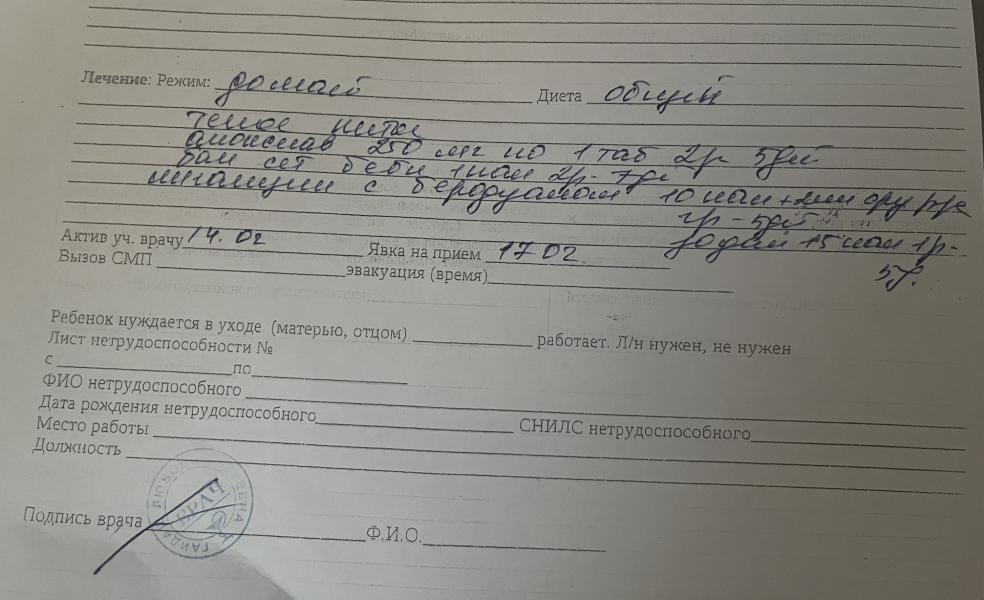 Лечение: Режим: домаш Диета общий
теплое питье
амоксиклав 250 мг по 1 таб 2р 5дй
бак сет беби 1 пак 2р - 7д
ингаляции с беродуалом 10 кап + 2мл физ р-ра
2р - 5дй
Актив уч. врачу 14.02 Явка на прием 17 02. 15 кап 1р -
Вызов СМП эвакуация (время) 5д.
Ребенок нуждается в уходе (матерью, отцом) работает. Л/н нужен, не нужен
Лист нетрудоспособности №
с по
ФИО нетрудоспособного
Дата рождения нетрудоспособного СНИЛС нетрудоспособного
Место работы
Должность
ВРАЧ
Подпись врача Ф.И.О.